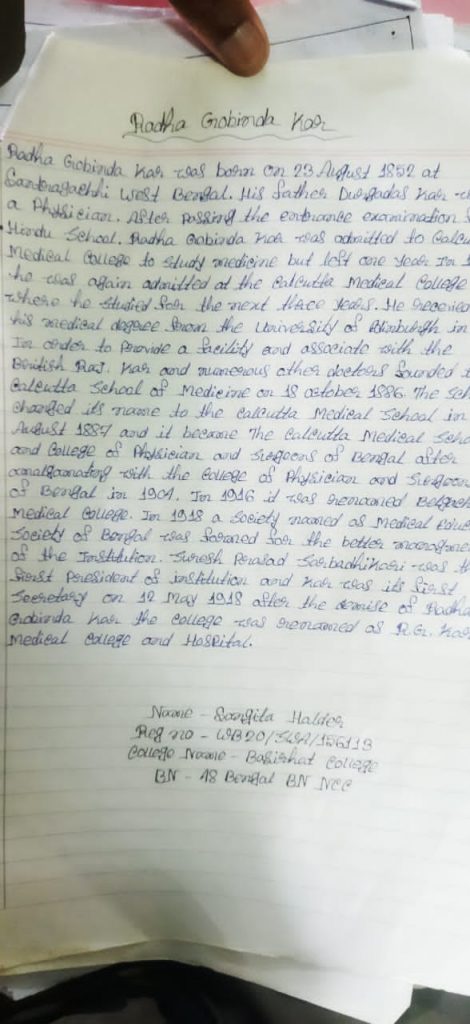 Radha Gobinda Kar
Radha Gobinda Kar was born on 23 August 1852 at
Santragachhi West Bengal. His father Durgadas Kar w
a Physician. After passing the entrance examination
Hindu School. Radha Gobinda Kar was admitted to Calcu
Medical College to study medicine but left one year In 1
he was again admitted at the Calcutta Medical College
where he studied for the next three years. He received
his medical degree from the University of Edinburgh in
In order to provide a facility and associate with the
British Raj. Kar and numerous other doctors founded t
Calcutta School of Medicine on 18 october 1886. The Sch
changed its name to the Calcutta Medical School in
August 1887 and it became The Calcutta Medical Scho
and College of Physician and Surgeons of Bengal after
amalgamating with the College of Physician and Surgeon
of Bengal in 1904. In 1916 it was renamed Belgach
Medical College. In 1918 a society named as Medical Educ
Society of Bengal was formed for the better managme
of the Institution. Suresh Prasad Sarbadhikari was th
first President of institution and Kar was its first
Secretary on 12 May 1918 after the demise of Radha
Gobinda Kar the college was renamed as R.G. Kar
Medical College and Hospital.
Name - Sangita Halder
Reg no - WB20/SWA/156113
College Name - Basirhat College
BN - 18 Bengal BN NCC